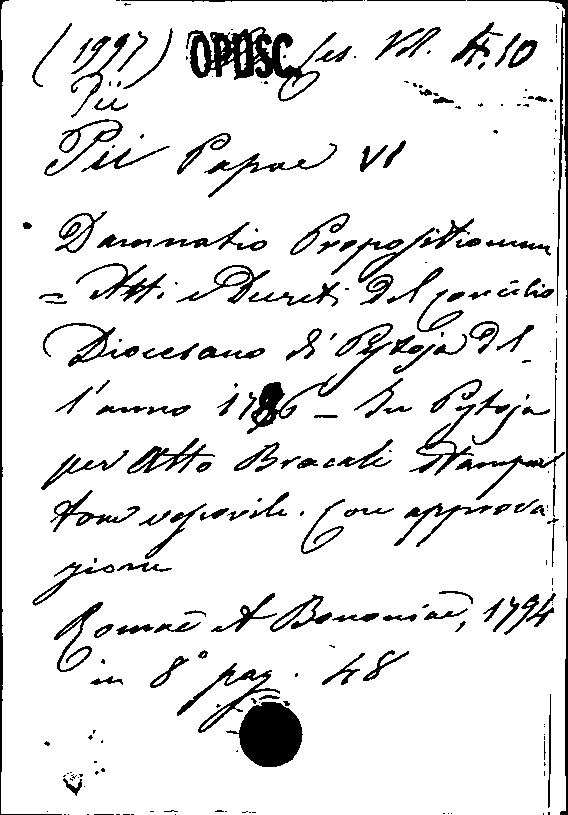 (1997) OPUSC. Ses. Vol. A.10
Pii
Pii Papae VI
Damnatio Propositionum
= Atti e Decreti del concilio
Diocesano di Pistoja del-
l'anno 1786 – In Pistoja
per Atto Bracali Stampa-
tore vescovile. Con approva-
zione
Romae et Bononiae, 1794
in 8° pag. 48